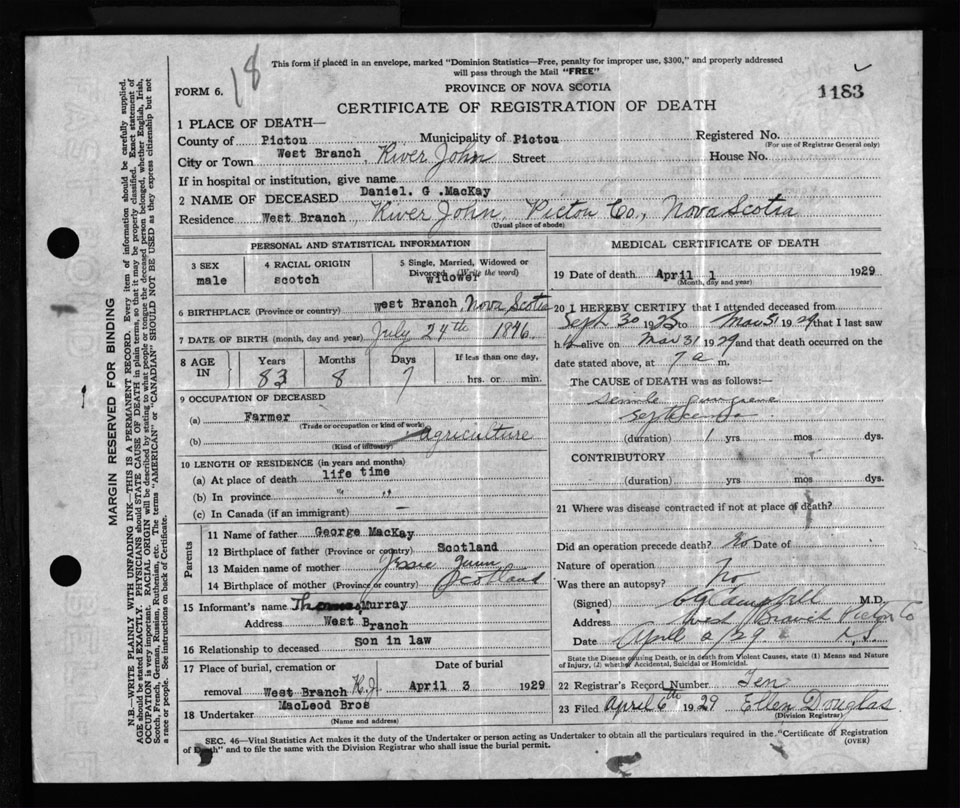 18
This form if placed in an envelope, marked "Dominion Statistics—Free, penalty for improper use, $300," and properly addressed
will pass through the Mail "FREE"
FORM 6.
PROVINCE OF NOVA SCOTIA
1183
CERTIFICATE OF REGISTRATION OF DEATH
1 PLACE OF DEATH—
County of Pictou Municipality of Pictou Registered No.
(For use of Registrar General only)
City or Town West Branch River John Street House No.
If in hospital or institution, give name
2 NAME OF DECEASED Daniel. G .MacKay
Residence West Branch River John, Pictou Co., Nova Scotia
(Usual place of abode)
PERSONAL AND STATISTICAL INFORMATION
3 SEX
male
4 RACIAL ORIGIN
scotch
5 Single, Married, Widowed or
Divorced (Write the word)
widower
6 BIRTHPLACE (Province or country) West Branch, Nova Scotia
7 DATE OF BIRTH (month, day and year) July 24th 1846.
8 AGE IN
Years 83
Months 8
Days 7
If less than one day,
hrs. or min.
9 OCCUPATION OF DECEASED
(a) Farmer
(Trade or occupation or kind of work)
(b) agriculture
(Kind of industry)
10 LENGTH OF RESIDENCE (in years and months)
(a) At place of death life time
(b) In province " "
(c) In Canada (if an immigrant)
Parents
11 Name of father George MacKay
12 Birthplace of father (Province or country) Scotland
13 Maiden name of mother Jessie Gunn
14 Birthplace of mother (Province or country) Scotland
15 Informant's name Murray
Address West Branch
16 Relationship to deceased son in law
17 Place of burial, cremation or
removal West Branch R.J.
Date of burial
April 3 1929
18 Undertaker MacLeod Bros
(Name and address)
MEDICAL CERTIFICATE OF DEATH
19 Date of death April 1 1929
(Month, day and year)
20 I HEREBY CERTIFY that I attended deceased from
Sept 30 19 to Mar 31 1929 that I last saw
h alive on Mar 31 1929 and that death occurred on the
date stated above, at 7 a m.
The CAUSE OF DEATH was as follows:—
Senile gangrene
Septicemia
(duration) 1 yrs mos dys.
CONTRIBUTORY
(duration) yrs mos dys.
21 Where was disease contracted if not at place of death?
Did an operation precede death? No Date of
Nature of operation
Was there an autopsy? No
(Signed) Campbell M.D.
Address West Branch Pictou Co
Date April /29 N.S.
State the Disease causing Death, or in death from Violent Causes, state (1) Means and Nature
of Injury, (2) whether Accidental, Suicidal or Homicidal.
22 Registrar's Record Number Ten
23 Filed April 6th 1929 Ellen Douglas
(Division Registrar)
SEC. 46—Vital Statistics Act makes it the duty of the Undertaker or person acting as Undertaker to obtain all the particulars required in the "Certificate of Registration
of Death" and to file the same with the Division Registrar who shall issue the burial permit.
(OVER)
MARGIN RESERVED FOR BINDING
N.B.—WRITE PLAINLY WITH UNFADING INK—THIS IS A PERMANENT RECORD. Every item of information should be carefully supplied.
AGE should be stated EXACTLY. PHYSICIANS should STATE CAUSE OF DEATH in plain terms, so that it may be properly classified. Exact statement of
OCCUPATION is very important. RACIAL ORIGIN will be described by stating to what people or tongue the deceased person belonged, whether English, Irish,
Scotch, French, German, Russian, Ruthenian, etc. The terms "AMERICAN" or "CANADIAN" SHOULD NOT BE USED as they express citizenship but not
a race or people. See instructions on back of Certificate.